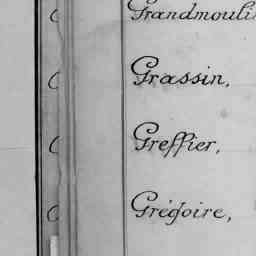 Grandmouli
Grassin,
Greffier,
Grégoire,